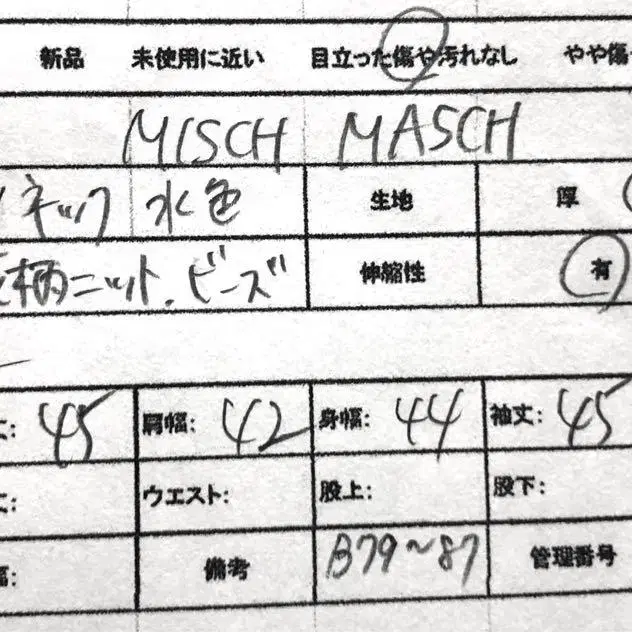 新品 未使用に近い 目立った傷や汚れなし やや傷
MISCH MASCH
ネック 水色 生地 厚
柄ニット.ビーズ 伸縮性 有
45 肩幅: 42 身幅: 44 袖丈: 45
ウエスト: 股上: 股下:
備考 B79~87 管理番号